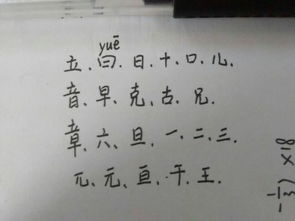 yuē
立、曰、日、十、口、儿、
音、早、克、古、兄、
章、六、旦、一、二、三、
兀、元、亘、干、王、